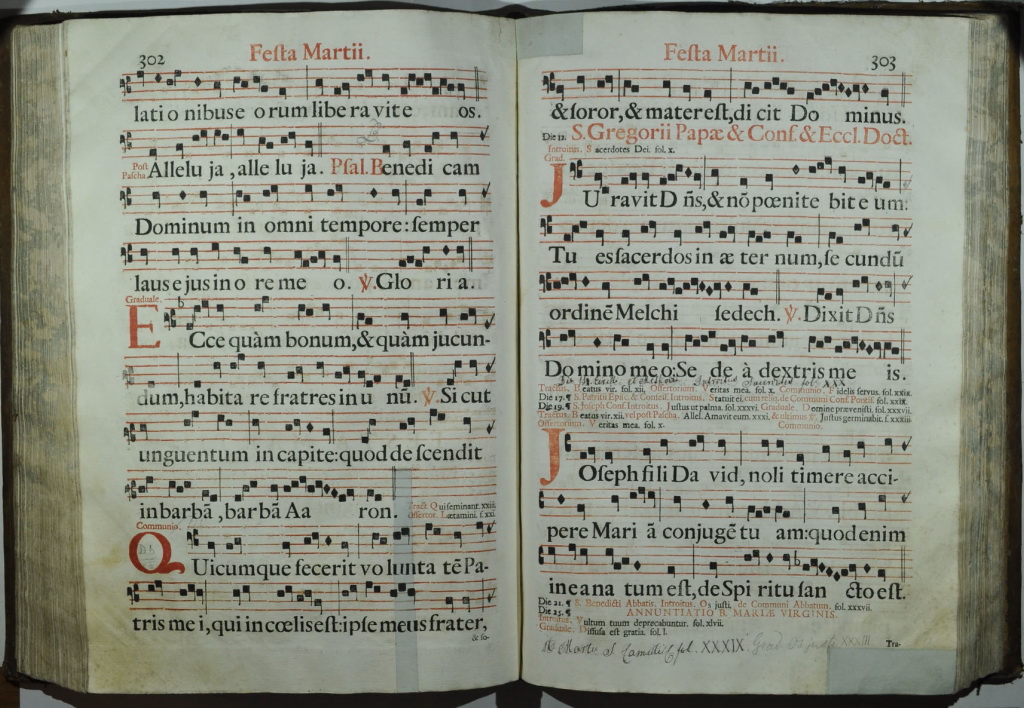 302
Festa Martii.
lati o nibuse orum libe ra vit e os.
Post Pascha. Allelu ja, alle lu ja. Psal. Benedi cam
Dominum in omni tempore: semper
laus ejus in o re me o. ℣. Glo ri a.
Graduale.
ECce quàm bonum, & quàm jucun-
dum, habita re fratres in u nũ. ℣. Si cut
unguentum in capite: quod de scendit
in barbã, barbã Aa ron. Tract. Qui seminant. xxii.
Offertor. Lætamini. f. xxi.
Communio.
QUicumque fecerit vo lunta tẽ Pa-
tris me i, qui in cœlis est: ipse meus frater,
& so-
303
Festa Martii.
& soror, & mater est, di cit Do minus.
Die 12. S. Gregorii Papæ & Conf. & Eccl. Doct.
Introitus. Sacerdotes Dei. fol. x.
Grad.
JUravit D ñs, & nõ pœnite bit e um:
Tu es sacerdos in æ ter num, se cundũ
ordinẽ Melchi sedech. ℣. Dixit D ñs
Do mino me o: Se de à dextris me is.
Tractus. Beatus vir. fol. xii. Offertorium. Veritas mea. fol. x. Communio. Fidelis servus. fol. xxix.
Die 17. ¶ S. Patritii Epis. & Confess. Introitus. Statuit ei, cum reliq. de Communi Conf. Pontif. fol. xxix.
Die 19. ¶ S. Joseph Conf. Introitus. Justus ut palma. fol. xxxvi. Graduale. Domine prævenisti. fol. xxxvii.
Tractus. Beatus vir. xii. vel post Pascha. Allel. Amavit eum. xxxi. & alius ℣. Justus germinabit. f. xxxiii
Offertorium. Veritas mea. fol. x. Communio.
JOseph fili Da vid, noli timere acci-
pere Mari ã conjugẽ tu am: quod enim
in ea na tum est, de Spi ritu san cto est.
Die 21. ¶ S. Benedicti Abbatis. Introitus. Os justi, de Communi Abbatum. fol. xxxvii.
Die 25. ¶ ANNUNTIATIO B. MARIÆ VIRGINIS.
Introitus. Vultum tuum deprecabuntur. fol. xlvii.
Graduale. Diffusa est gratia. fol. l.
S. Camilli fol. XXXIX Grad Os justi XXXIII
Tra-